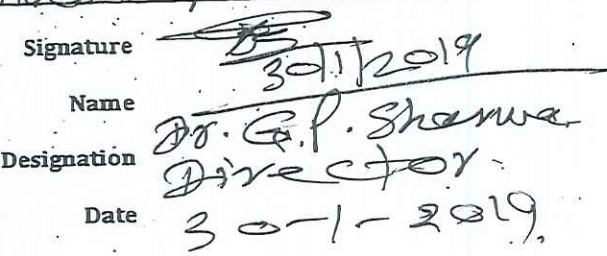 Signature 30/1/2019
Name Dr. G.P. Sharma
Designation Director
Date 30-1-2019